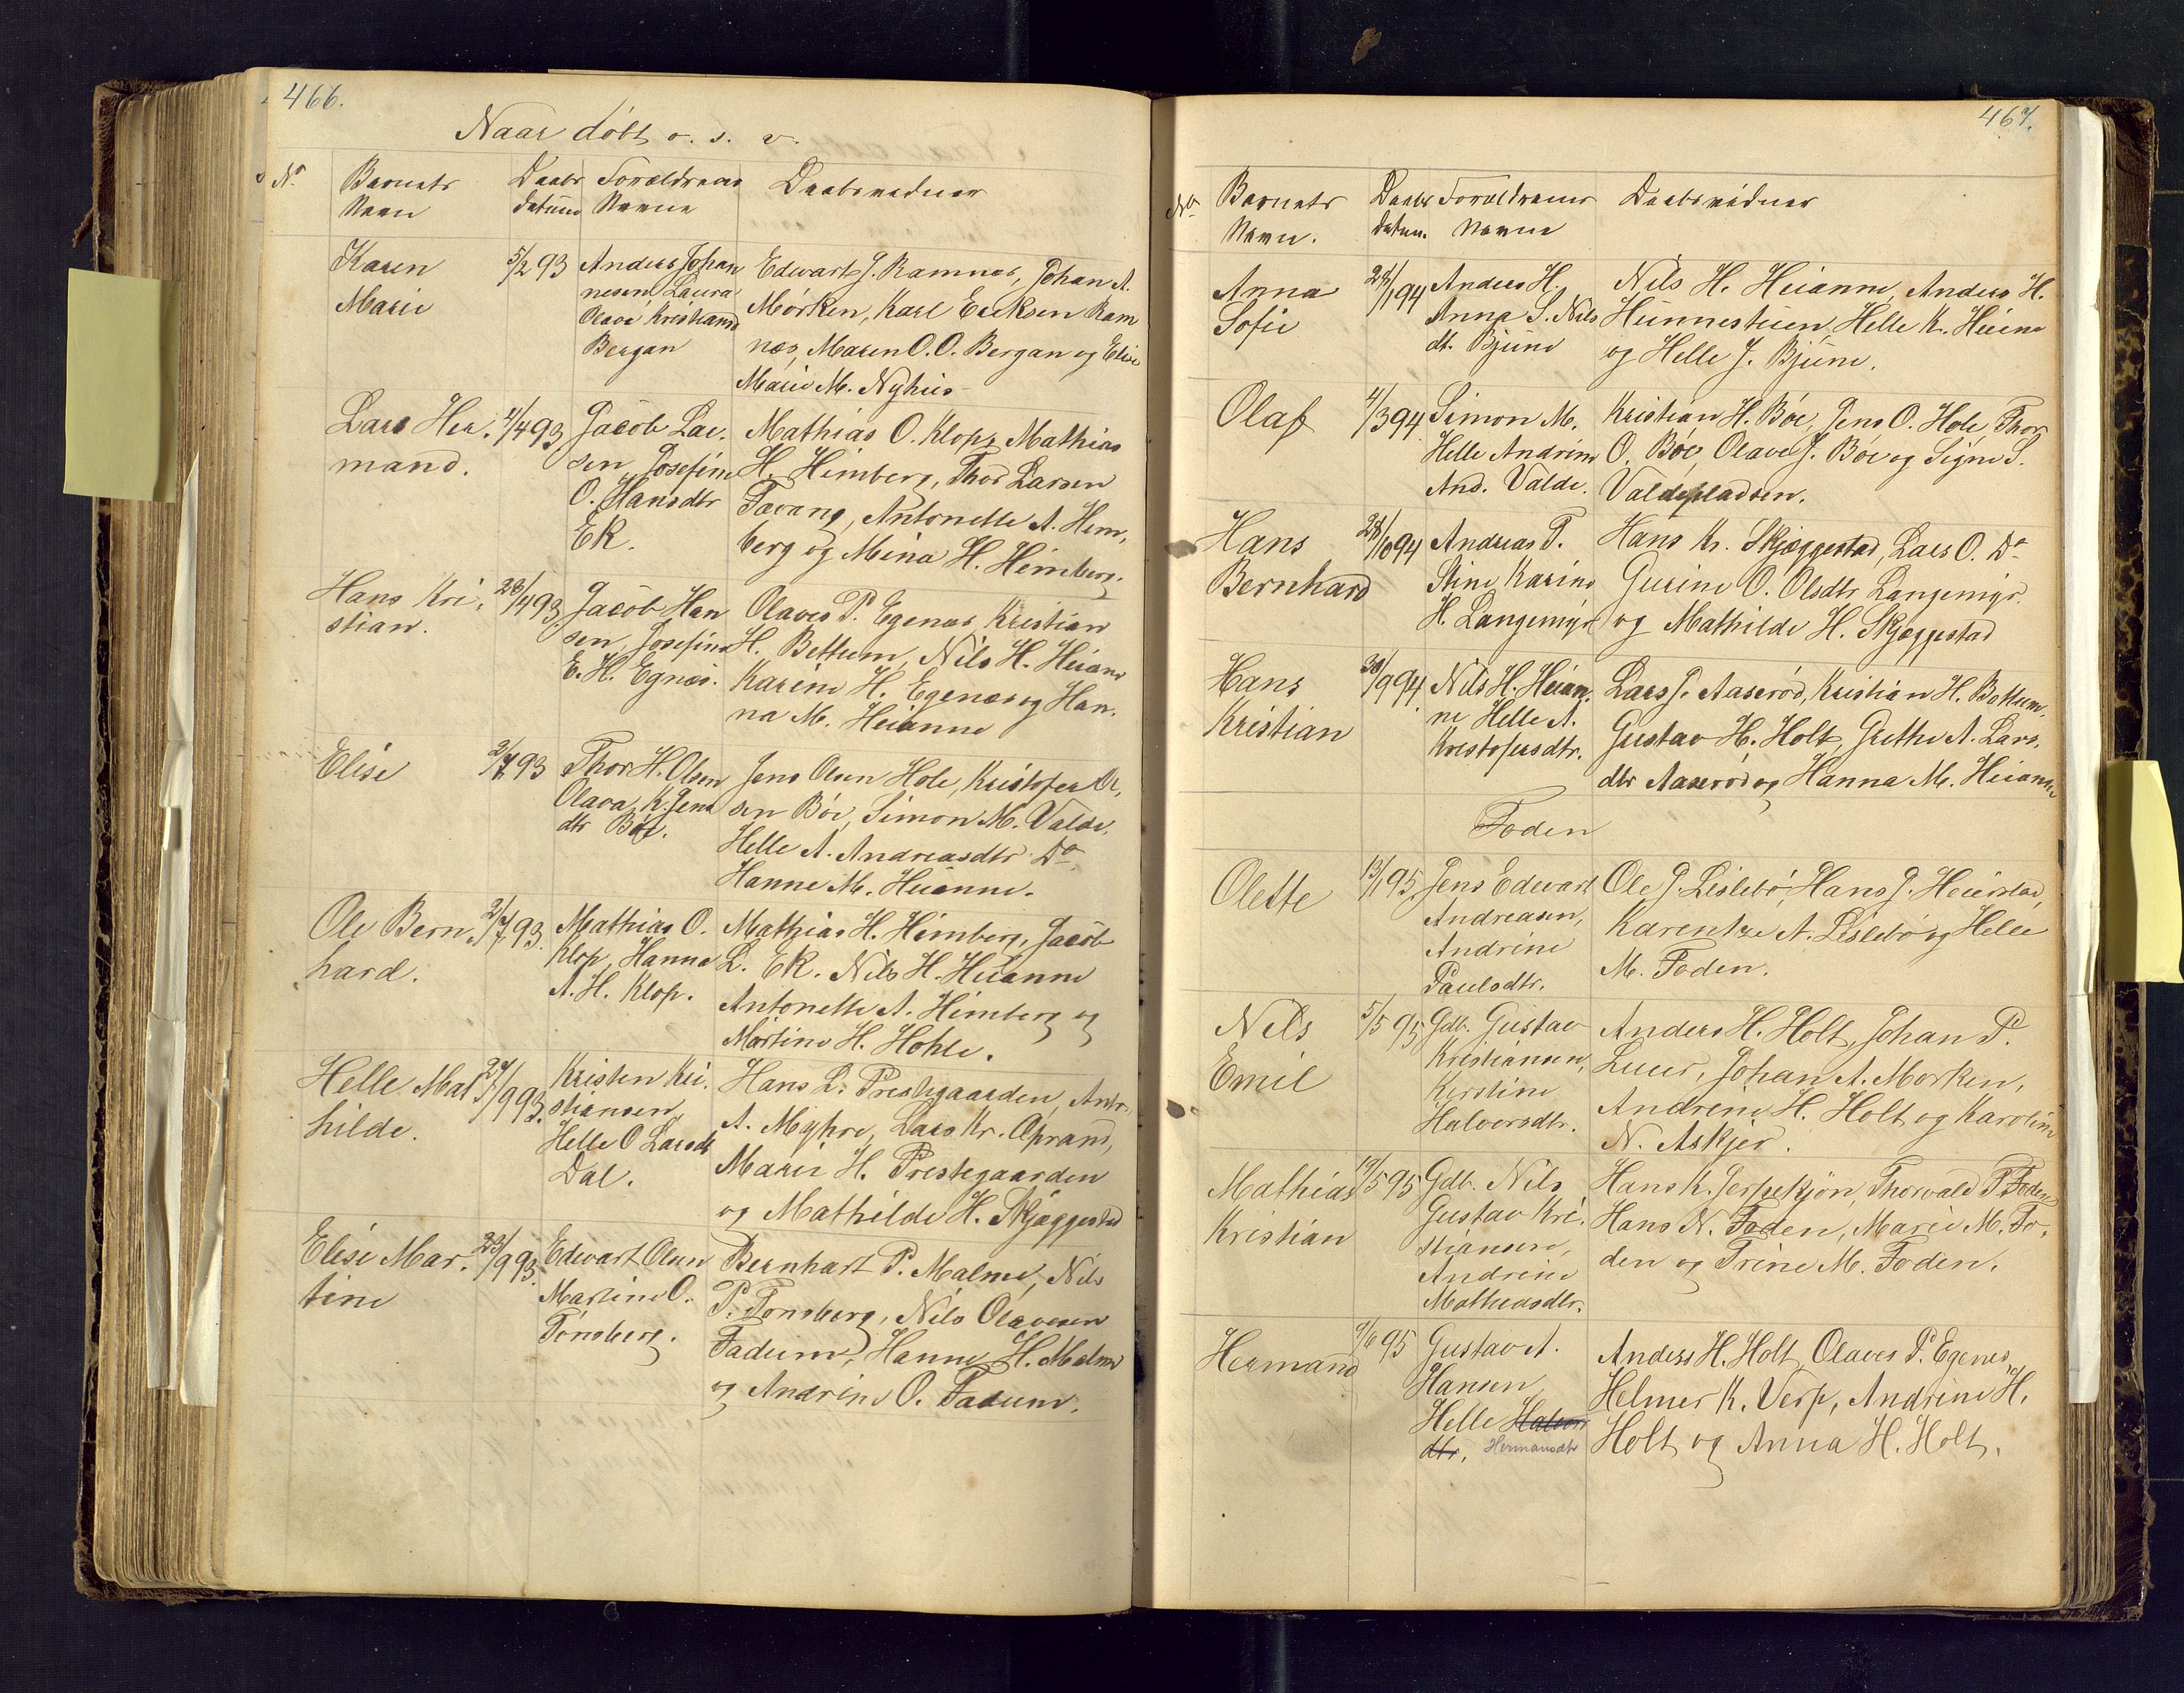 466.
Naar döbt o. s. v.
No Barnets Navn Daabs datum Forældrenes Navne Daabsvidner
Karen Marie
5/2 93
Anders Johan
nesen, Laura
Olava Kristiansd
Bergan
Edvart J. Ramnæs, Johan A.
Mørken, Karl Eriksen Ram
næs, Maren O. O. Bergan og Elise
Marie M. Nyhus
Lars Her-
mand.
4/4 93
Jacob Lar-
sen, Josefine
O. Hansdtr
Ek.
Mathias O. Klop, Mathias
H. Himberg, Thor Larsen
Tavang, Antonette A. Him-
berg og Mina H. Himberg.
Hans Kri-
stian.
23/4 93
Jacob Han
sen, Josefine
E. H. Egnæs.
Olaves P. Egenæs, Kristian
H. Bettum, Nils H. Heiane
Karine H. Egenæs og Han-
na M. Heianne
Elise
2/7 93
Thor H. Olsen
Olava K. Jens
dtr Böe.
Jens Olsen Hole, Kristofer Ol-
sen Böe, Simon M. Valde,
Helle A. Andreasdtr Do
Hanne M. Heianne.
Ole Bern-
hard.
2/7 93.
Mathias O.
Klop, Hanna
A. H. Klop.
Mathias H. Himberg, Jacob
L. Ek. Nils H. Heianne
Antonette A. Himberg og
Martine H. Hohle.
Helle Mat
hilde.
24/9 93.
Kristen Kri-
stiansen,
Helle O Larsdt
Dal.
Hans L. Prestegaarden, Andr.
A. Myhre, Lars Kr. Oprand,
Marie H. Prestegaarden
og Mathilde H. Skjæggestad
Elise Mar-
tine
23/9 93.
Edvart Olsen
Martine O.
Tönsberg.
Bernhart P. Malme, Nils
P. Tonsberg, Nils Olavesen
Fadum, Hanne H. Malme
og Andrine O. Fadum.
467.
No Barnets Navn. Daabs datum. Forældrenes Navne Daabsvidner
Anna
Sofie
28/1 94
Anders H.
Anna S. Nils
dt. Bjune
Nils H. Heianne, Anders H.
Hunnestuen, Helle K. Heiene
og Helle J. Bjune.
Olaf
4/3 94
Simon M.
Helle Andrine
And. Valde.
Kristian H. Böe, Jens O. Hole, Thor
O. Böe, Olave J. Böe og Signe S.
Valdepladsen.
Hans
Bernhard
28/10 94
Andreas T.
Stine Karine
H. Langemyr
Hans Kr. Skjæggestad, Lars O. Do
Gurine O. Olsdtr Langemyr.
og Mathilde H. Skjæggestad
Hans
Kristian
30/9 94.
Nils H. Heian-
ne Helle A.
Kristofersdtr.
Lars J. Aaserød, Kristian H. Bettum,
Gustav H. Holt, Grethe A. Lars-
dtr Aaserød og Hanna M. Heianne
Foden
Olette
13/1 95.
Jens Edvart
Andreasen,
Andrine
Paulsdtr.
Ole J. Lislebö, Hans J. Heierstad,
Karentze A. Lislebö og Helle
M. Foden.
Nils
Emil
5/5 95
Gdb. Gustav
Kristiansen,
Kirstine
Halvorsdtr.
Anders H. Holt, Johan P.
Luus, Johan A. Morken,
Andrine H. Holt og Karoline
N. Askjer.
Mathias
Kristian
19/5 95
Gdb. Nils
Gustav Kri-
stiansen,
Andrine
Mathiasdtr.
Hans K. Jerpekjøn, Thorvald P. Foden
Hans N. Foden, Marie M. Fo-
den og Trine M. Foden.
Hermand
9/6 95
Gustav A.
Hansen
Helle Halvors
dtr. Hermansdtr
Anders H. Holt, Olaves P. Egenes
Helmer K. Verp, Andrine H.
Holt og Anna H. Holt.